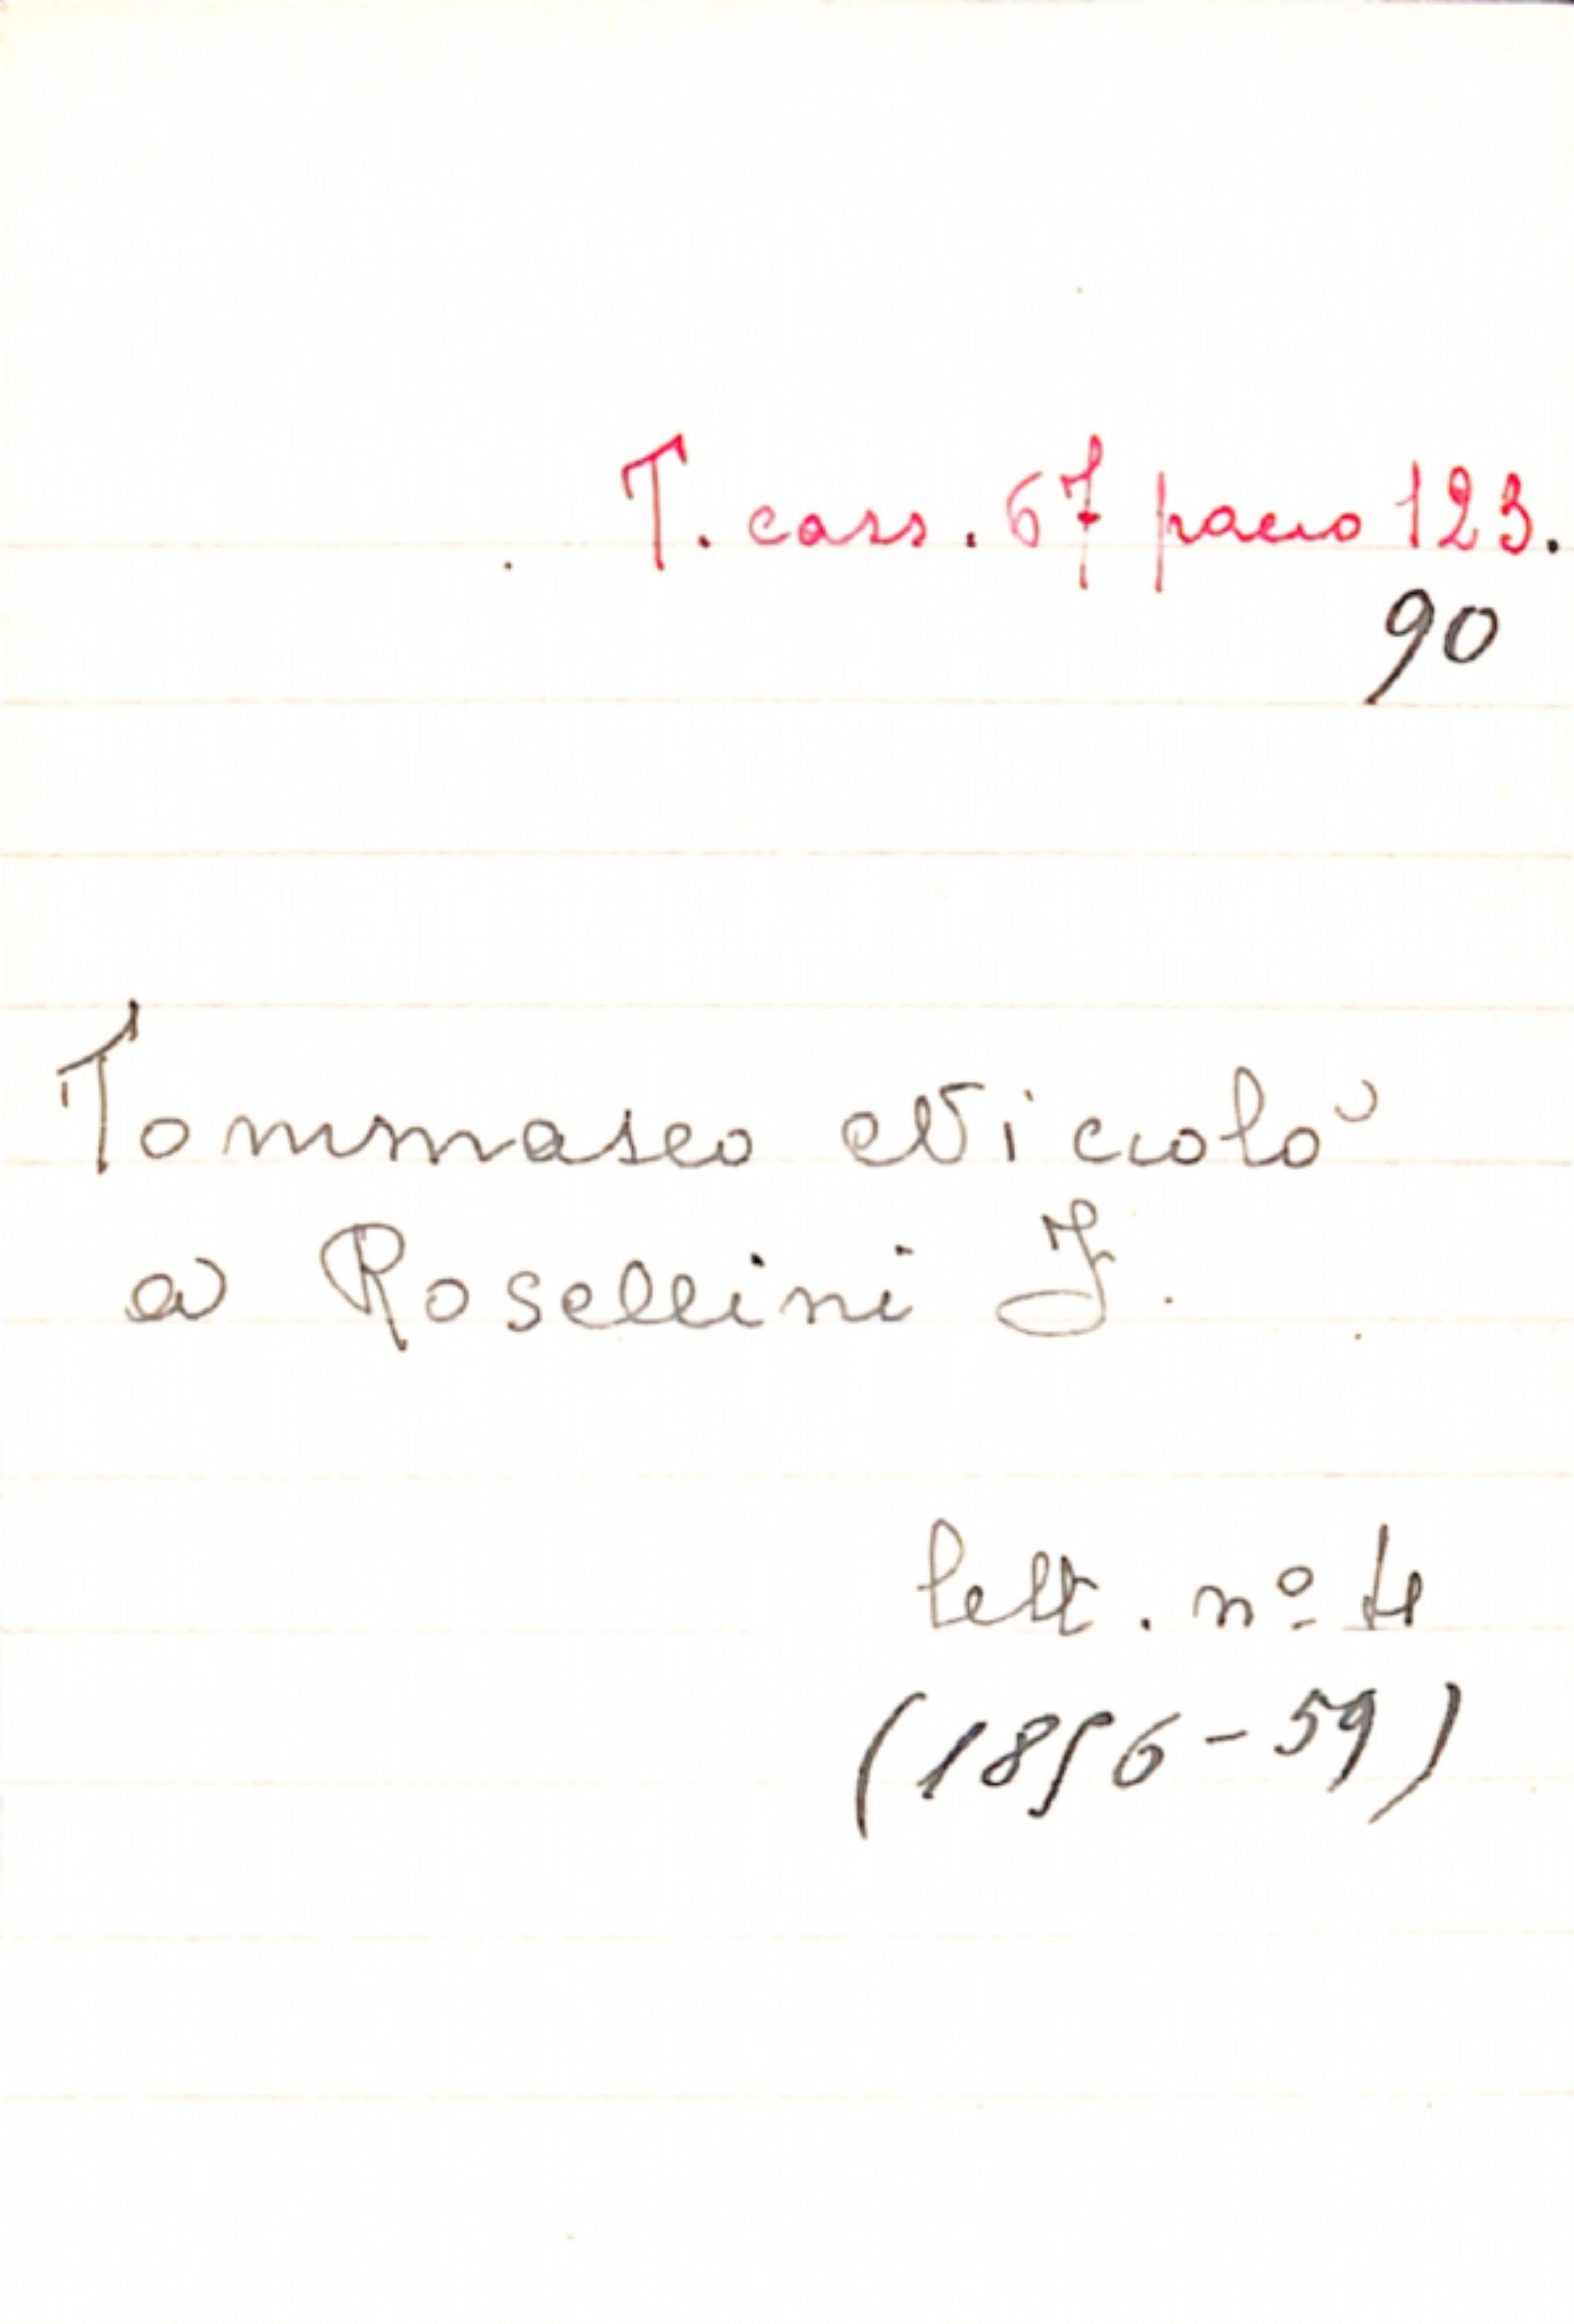 T. cass. 67 pacco 123.
90
Tommaseo Niccolò
a Rosellini I.
lett. nº 4
(1856-59)